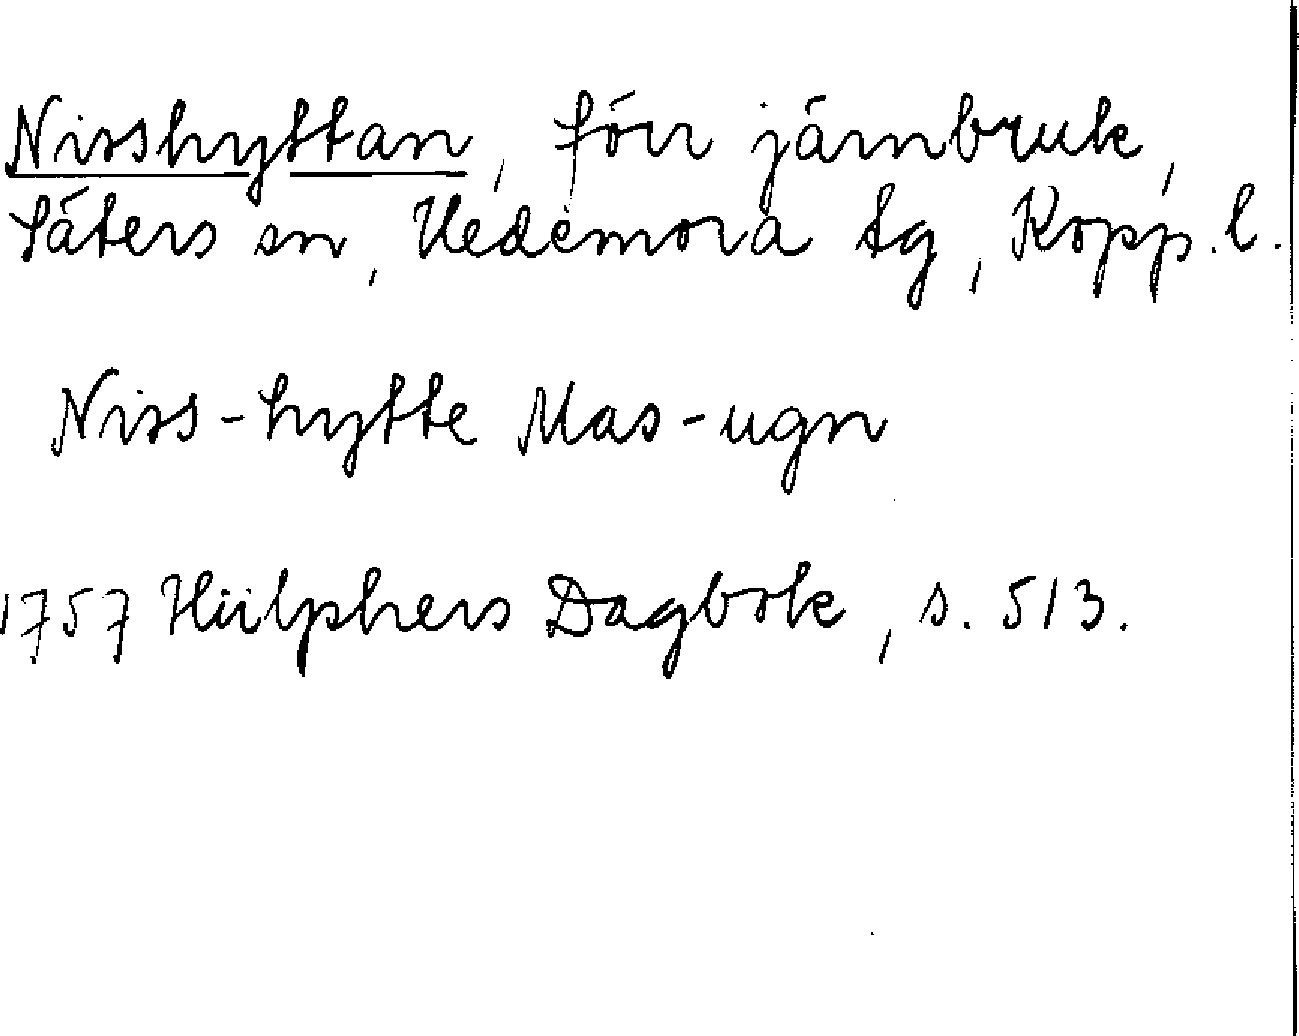 Nisshyttan, förr järnbruk,
Säters sn, Hedemora tg, Kopp. l.
Niss-hytte Mas-ugn
1757 Hülphers Dagbok, s. 513.